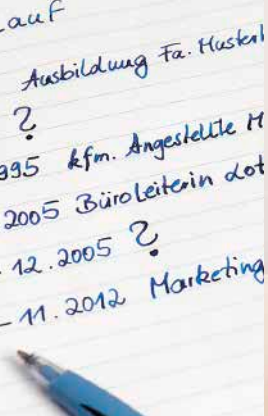 Lauf
Ausbildung Fa. Musterh
?
995 kfm. Angestellte M
2005 Büroleiterin dot
- 12.2005 ?
- 11.2012 Marketing